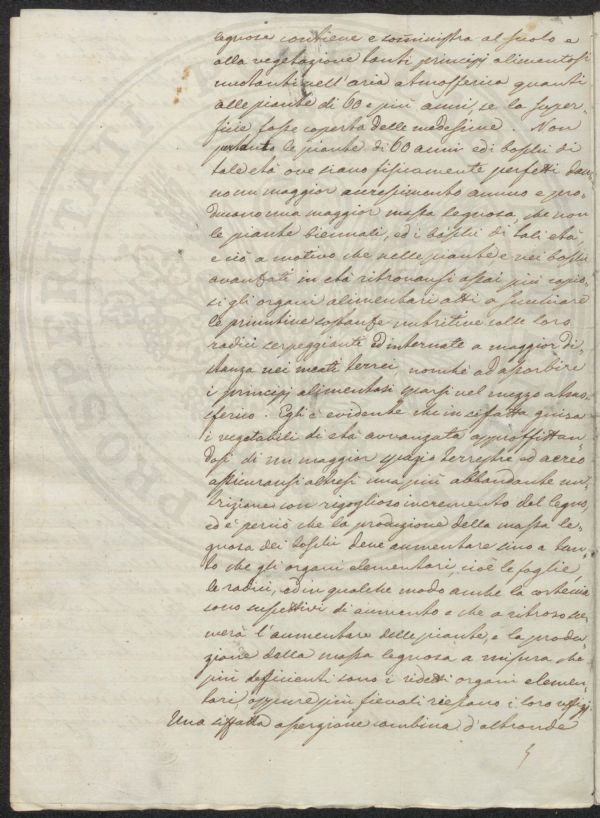 legnosa contiene e somministra al suolo e
alla vegetazione tanti principj alimentosi
nuotanti nell'aria atmosferica quanti
alle piante di 60 e più anni, se la super-
ficie fosse coperta delle medesime. Non
pertanto le piante di 60 anni ed i boschi di
tale età ove siano fisicamente perfetti dan-
no un maggior accrescimento annuo e pro-
ducono una maggior massa legnosa, che non
le piante biennali, ed i boschi di tali età,
e ciò a motivo che nelle piante e nei boschi
avanzati in età ritrovansi assai più copio-
si gli organi alimentari atti a succhiare
le primitive sostanze nutritive colle loro
radici serpeggianti ed internate a maggior di-
stanza nei meati terrei, nonchè ad assorbire
i principj alimentosi sparsi nel mezzo atmos-
ferico. Egli è evidente che in siffatta guisa
i vegetabili di età avvanzata approffittan-
dosi di un maggior spazio terrestre ed aereo
assicuransi altresì una più abbondante nu-
trizione con rigoglioso incremento del legno,
ed è perciò che la produzione della massa le-
gnosa dei boschi deve aumentare sino a tan-
to che gli organi elementari, cioè le foglie,
le radici, ed in qualche modo anche la corteccia
sono suscettivi di aumento e che a ritroso sce-
merà l'aumentare delle piante, e la produ-
zione della massa legnosa a misura che
più deficienti sono i ridetti organi elemen-
tari, oppure più fievoli riescano i loro uffizj.
Una siffatta asserzione combina d'altronde